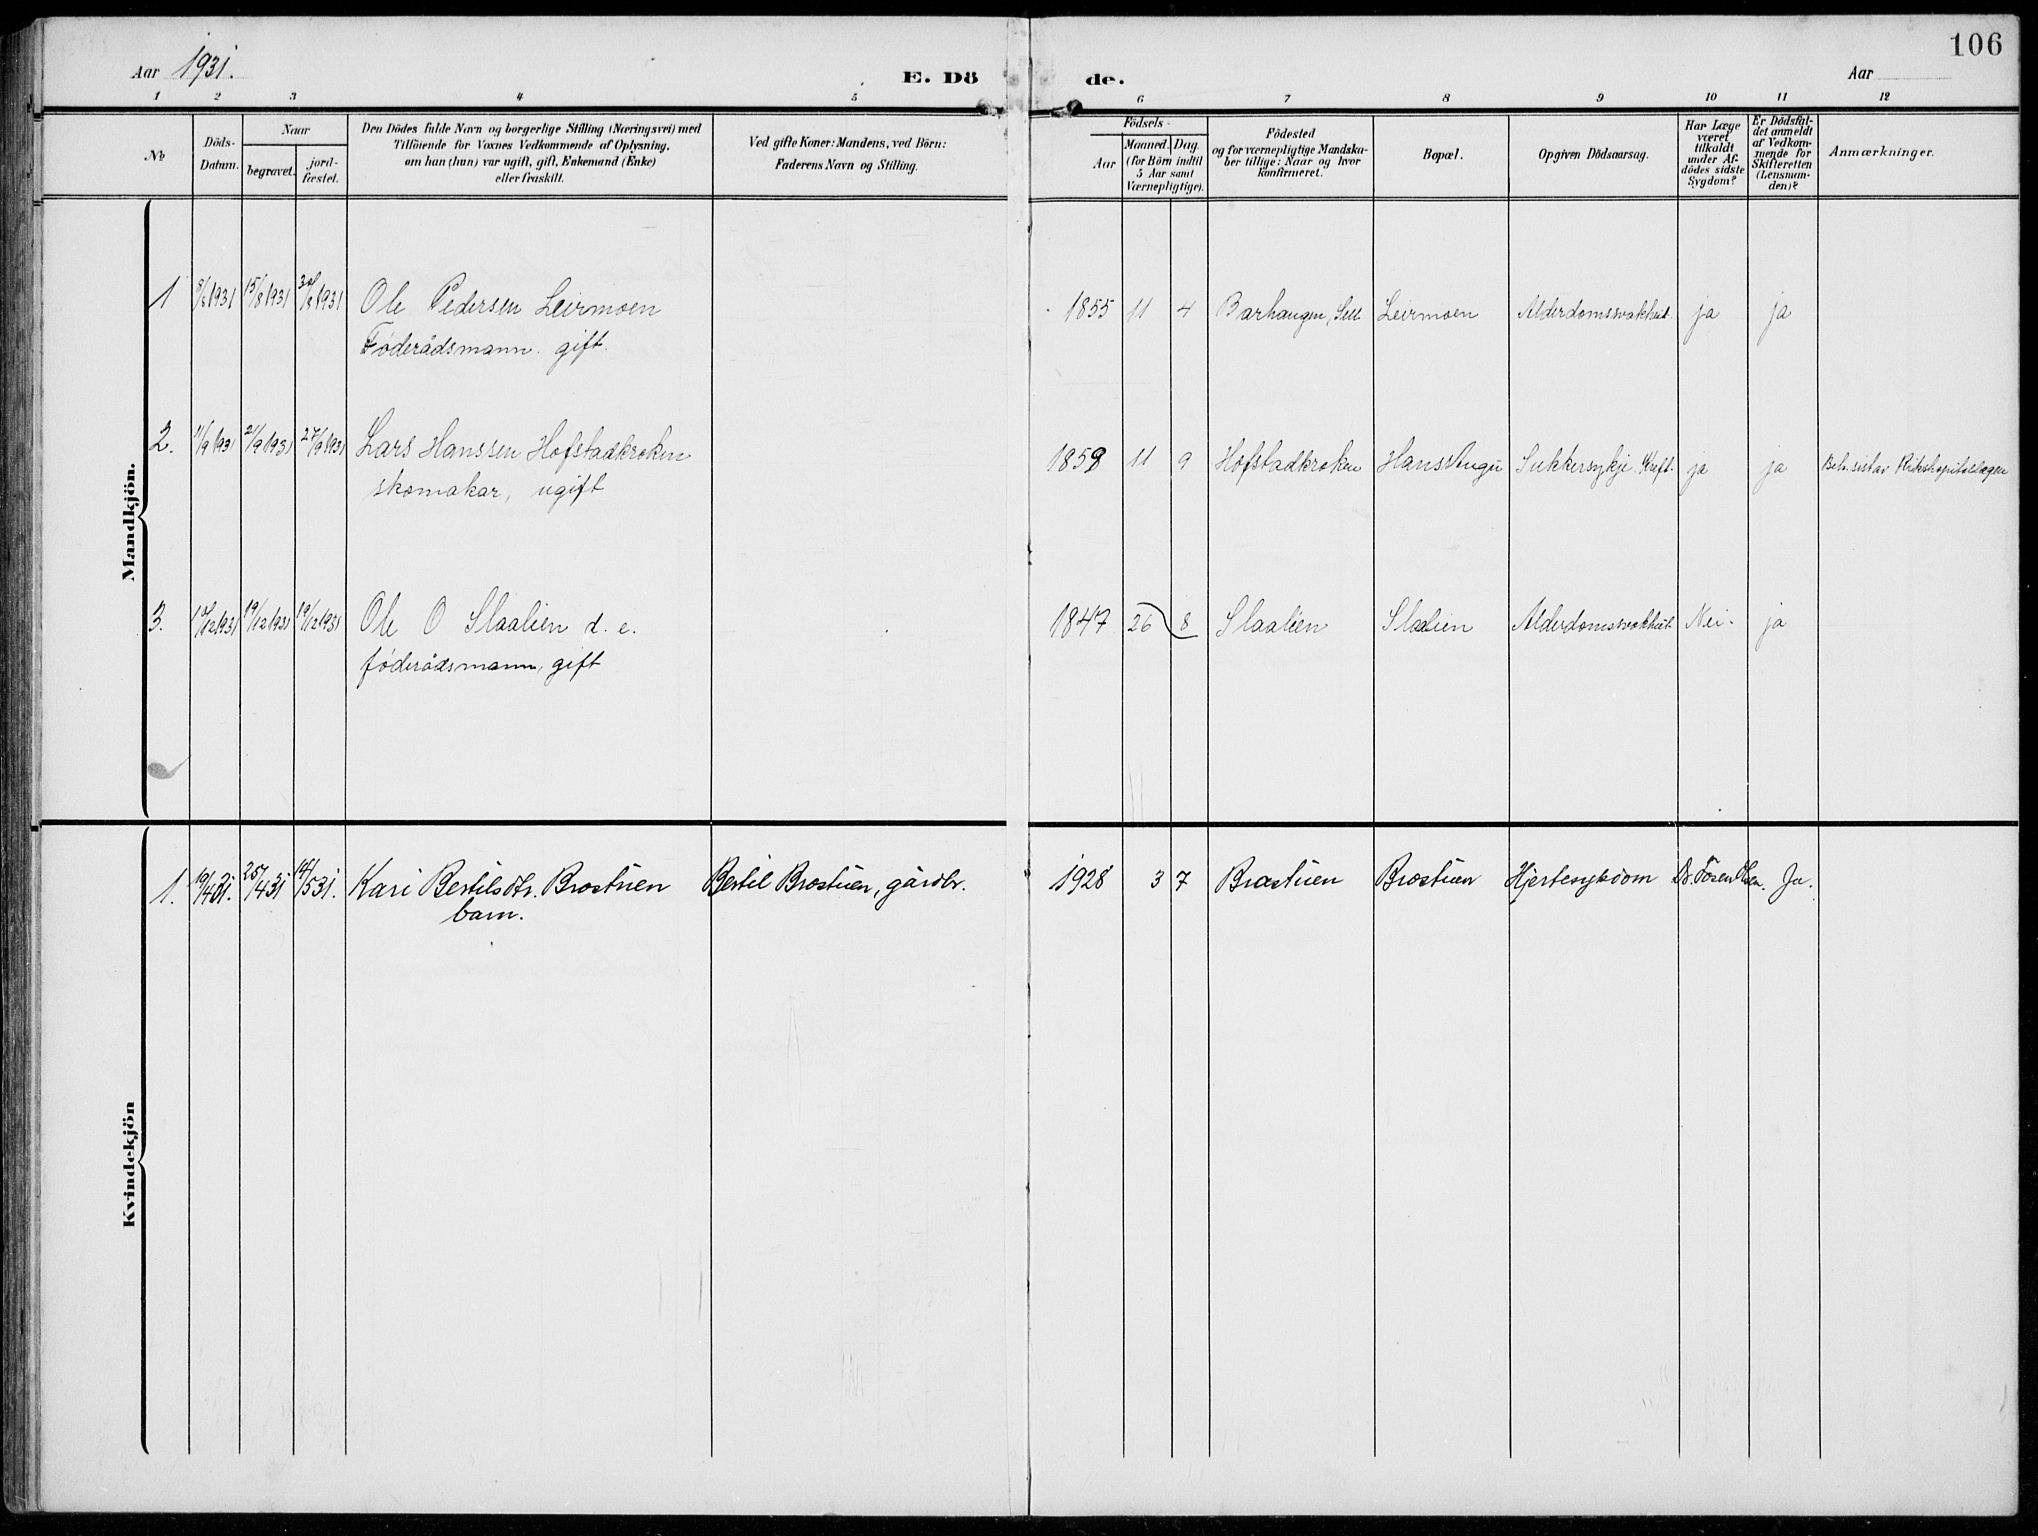 106
Aar 1931.
E. Dö de.
Aar
1 2 3 4 5 6 7 8 9 10 11 12
No
Döds-
Datum.
Naar
begravet.
jord-
fæstet.
Den Dödes fulde Navn og borgerlige Stilling (Næringsvei) med
Tilföiende for Voxnes Vedkommende af Oplysning,
om han (hun) var ugift, gift, Enkemand (Enke)
eller fraskilt.
Ved gifte Koner: Mandens, ved Börn:
Faderens Navn og Stilling.
Födsels-
Aar
Maaned. Dag.
(for Börn indtil
5 Aar samt
Værnepligtige).
Födested
og for værnepligtige Mandska-
ber tillige: Naar og hvor
konfirmeret.
Bopæl.
Opgiven Dödsaarsag.
Har Læge
været
tilkaldt
under Af-
dödes sidste
Sygdom?
Er Dödsfal-
det anmeldt
af Vedkom-
mende for
Skifteretten
(Lensman-
den)?
Anmærkninger.
Mandkjön.
1 8/8 1931 15/8 1931 30/8 1931 Ole Pedersen Leirmoen 1855 11 4 Barhaugen, Sell Leirmoen Alderdomssvakhet ja ja
Føderådsmann. gift.
2. 11/9 1931 21/9 1931 27/9 1931 Lars Hanssen Hofstadkroken 1859 11 9 Hofstadkroken Sukkersykje. Kreft. ja ja
skomakar, ugift
3. 19/12 1931 19/12 1931 Ole O Slaalien d. e. 1847 26 8 Slaalien Slaalien Alderdomssvakhet Nei. ja
føderådsmann, gift
Kvindekjön
1. 19/4 31. 25/4 31 14/5 31. Kari Bertilsdtr. Brostuen Bertil Brostuen, gårdbr. 1928 3 7 Brostuen Brostuen Hjertesykdom Ja.
barn.